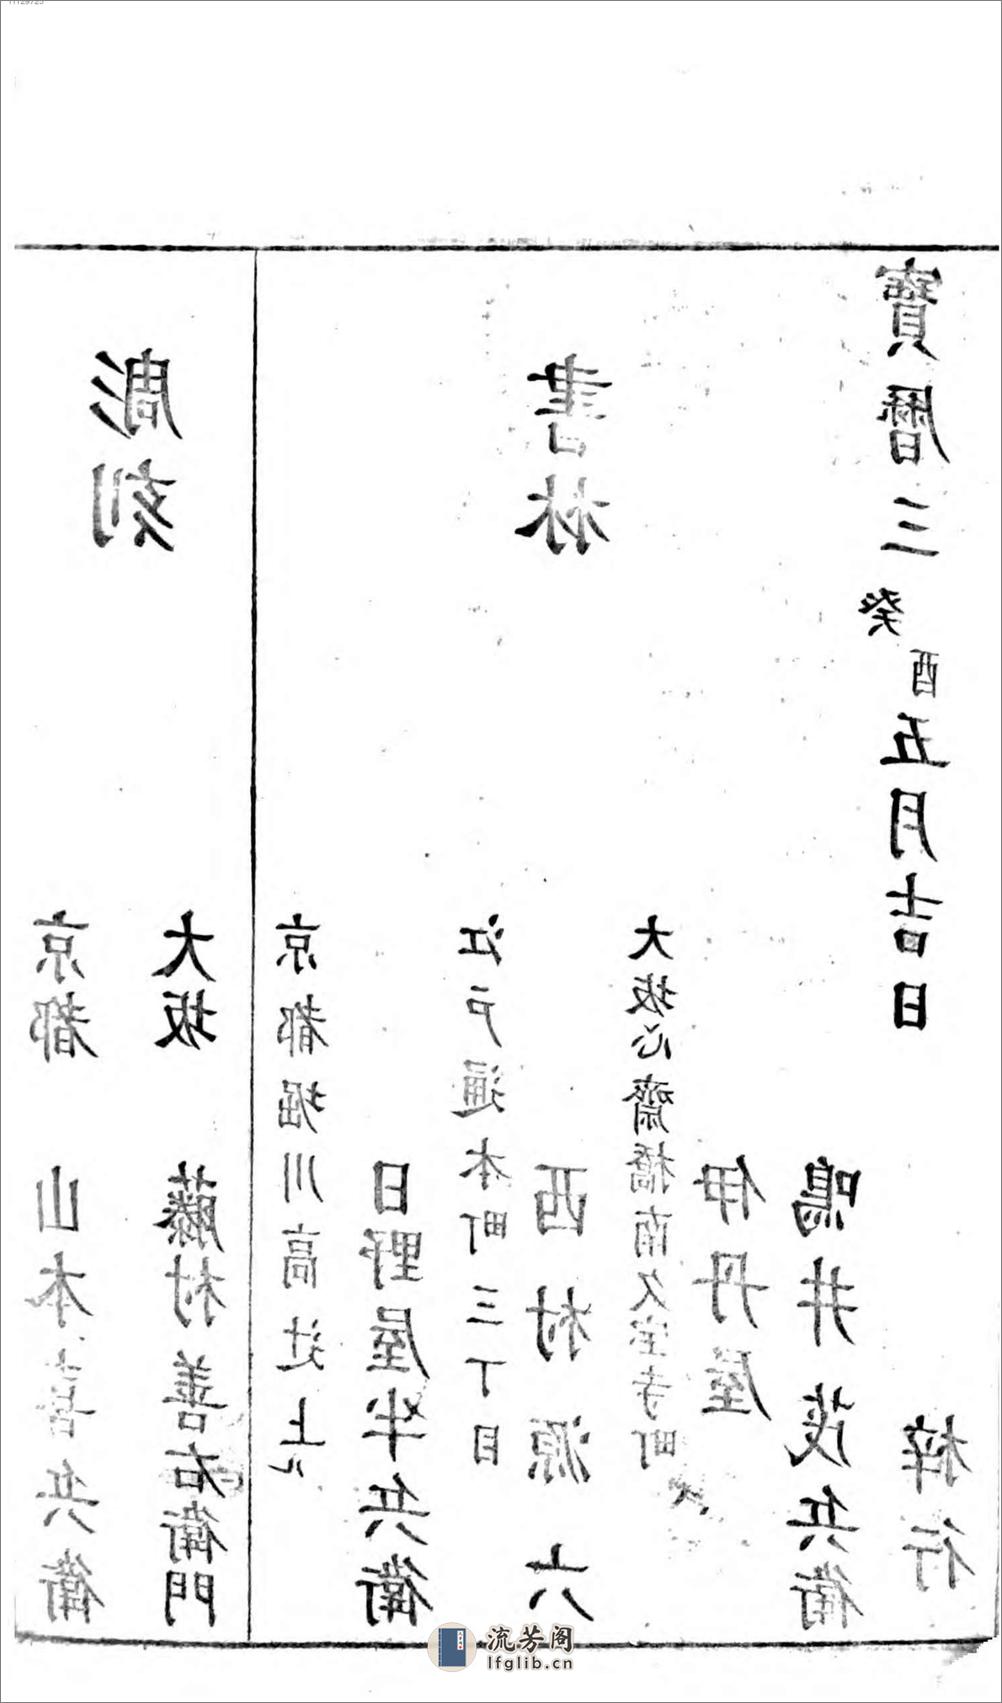 11129725
寶曆三癸酉五月吉日
梓行
鳴井茂兵衛
伊丹屋
大坂心齋橋南久宝寺町
書林
西村源六
江戸通本町三丁目
日野屋半兵衛
京都堀川高辻上ル
彫刻
大坂
藤村善右衛門
京都
山本喜兵衛
流芳阁
lfglib.cn